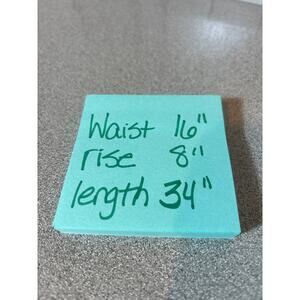 Waist 16"
rise 8"
length 34"